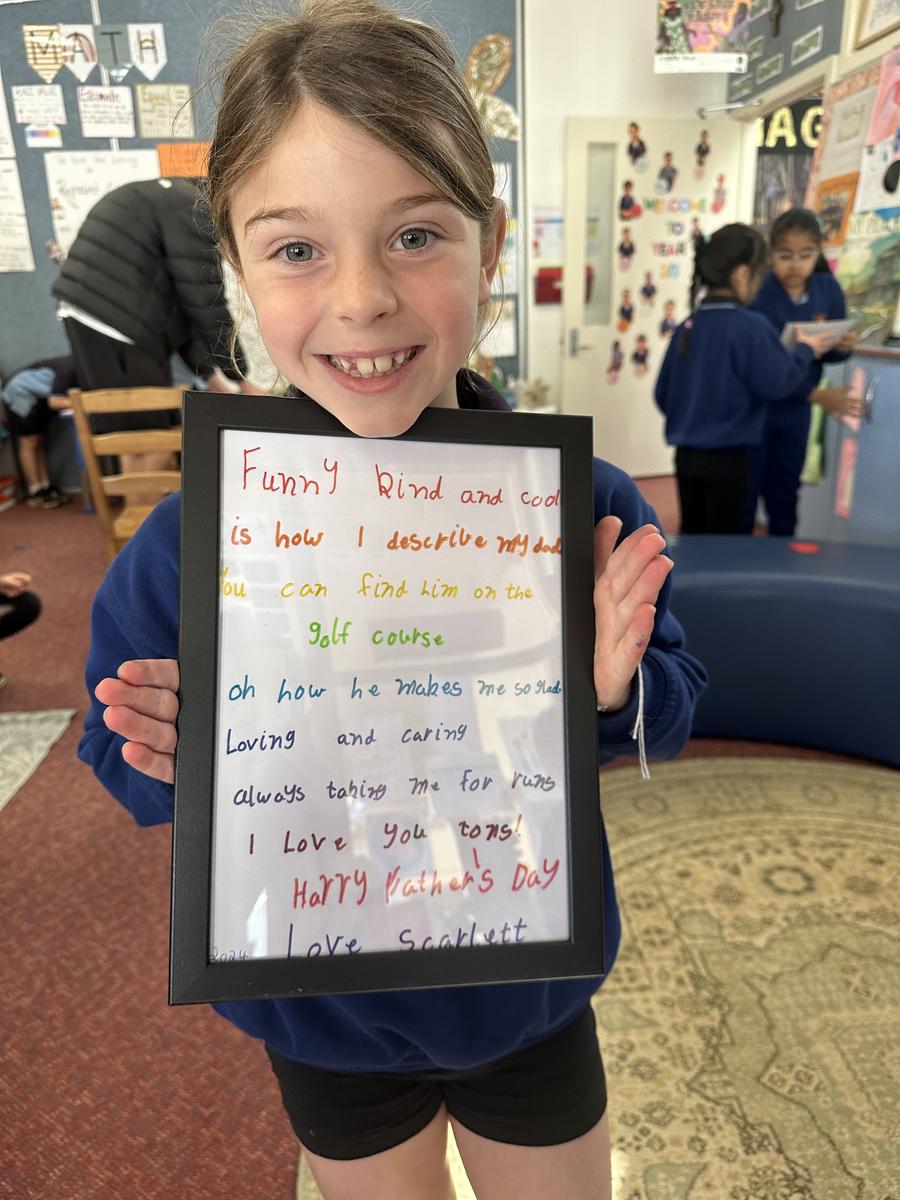 MATH
Estimate
Funny kind and cool
is how I describe my dad
You can find him on the
golf course
oh how he makes me so glad
Loving and caring
always taking me for runs
I Love you tons!
Harry Father's Day
Love Scarlett
2024
WELCOME
TO
YEAR